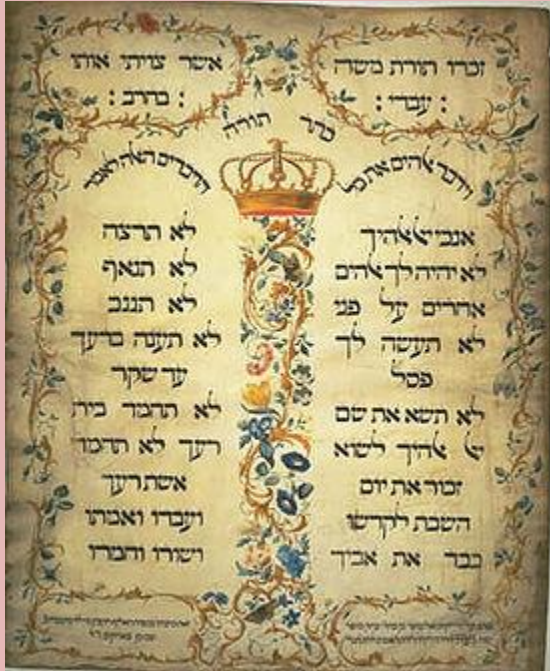 זכרו תורת משה
: עבדי :
אשר צויתי אותו
: בחרב :
כתר תורה
וידבר ﭏהים את כל
הדברים האלה לאמר
אנכי ﭏהיך
לא יהיה לך ﭏהים
אחרים על פני
לא תעשה לך
פסל
לא תשא את שם
ﭏהיך לשוא
זכור את יום
השבת לקדשו
כבד את אביך
לא תרצח
לא תנאף
לא תגנב
לא תענה ברעך
עד שקר
לא תחמד בית
רעך לא תחמד
אשת רעך
ועבדו ואמתו
ושורו וחמרו